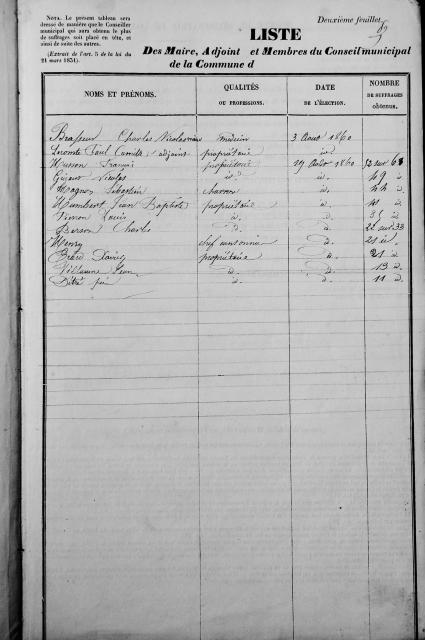 Deuxième feuillet
NOTA. Le présent tableau sera
dressé de manière que le Conseiller
municipal qui aura obtenu le plus
de suffrages soit placé en tête, et
ainsi de suite des autres.
(Extrait de l'art. 5 de la loi du
21 mars 1831).
LISTE
Des Maire, Adjoint et Membres du Conseil municipal
de la Commune d
NOMS ET PRÉNOMS. QUALITÉS OU PROFESSIONS. DATE DE L'ÉLECTION. NOMBRE DE SUFFRAGES obtenus.
Brasseur Charles médecin 3 Aout 1860
Lecomte Paul Camille, adjoint propriétaire id
Husson François propriétaire 19 Aout 1860 52 sur 68
Nicolas id id. 49 d
Magnon Sébastien charron d. 44 d
Humbert Jean Baptiste propriétaire d. 41 d
Louis d. d.
Person Charles d. d. 22 sur 33
Henry d. 21 d.
propriétaire d. 21 d
Villaume Jean d. d. 13 d.
d. d. 11 d.